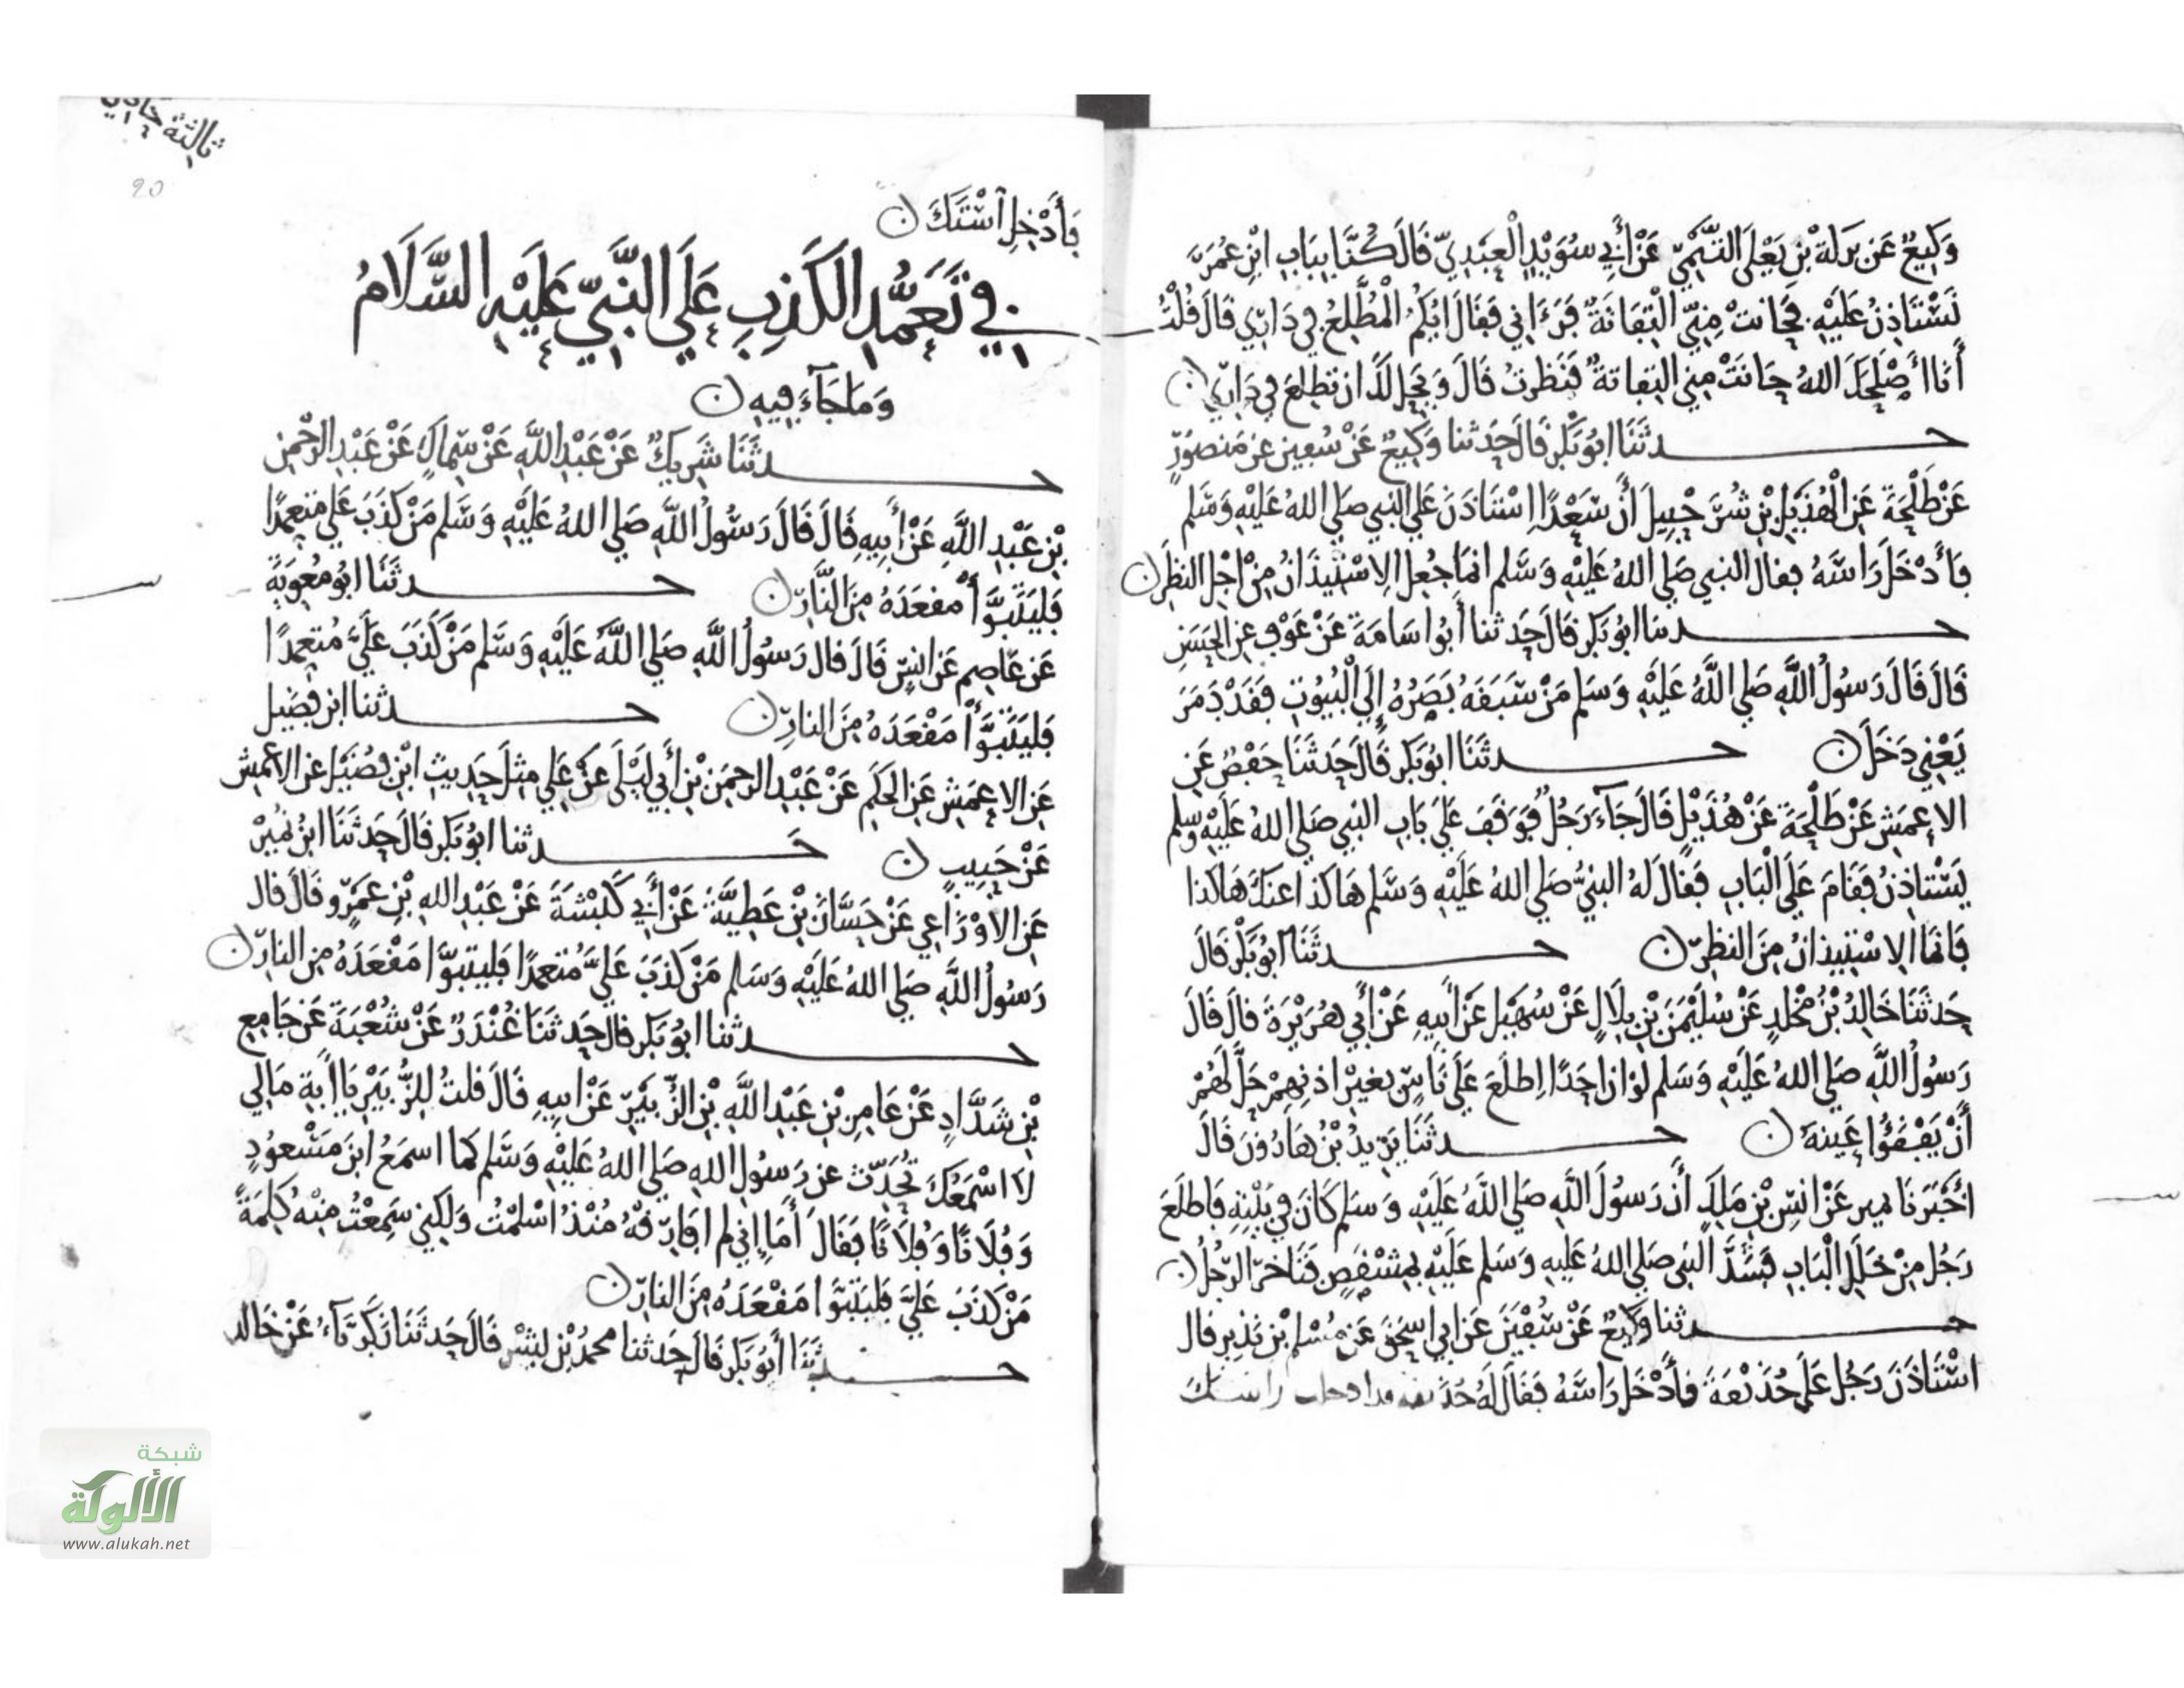 وَكِيعٌ عَن بَرَكَةَ بْنِ يَعْلَى التَّيْمِيِّ عَنْ أَبِي سُوَيْدٍ الْعَبْدِيّ قَالَ كُنَّا بِبَابِ ابْنِ عُمَرَ
نَسْتَاذِنُ عَلَيْهِ فَحَانَتْ مِنِّي الْتِفَاتَةٌ فَرَءَانِي فَقَالَ ايُّكُمُ الْمُطَّلِعُ فِي دَارِي قَالَ قُلْتُ
أَنَا أَصْلَحَكَ اللهُ حَانَتْ مِنِي التِفَاتَةٌ فَنَظَرتُ قَالَ وَيَحِلُ لَكَ ان تَطَّلِعَ فِي دَارِي ن
حـــدثَنَا ابُو بَكْرٍ قَالَ حَدثنا وَكِيعٌ عَنْ سُفْين عن مَنصورٍ
عَنْ طَلْحَةَ عَنِ الْهُذَيْلِ بْنِ شُرَحْبِيلَ أَنَّ سَعْدًا اِسْتَاذَنَ عَلَى النبي صَلى اللهُ عَلَيْهِ وَسَلم
فَأَدْخَلَ رَاسَهُ فقال النبي صَلى اللهُ عَلَيْهِ وَسَلم انمَا جُعِلَ الِاسْتِيذَانُ مِنْ اجْلِ النظَرِ ن
حـــدثنا ابُو بَكر قَالَ حَدثنا أَبُو اسَامَةَ عَنْ عَوْفٍ عن الحَسَنِ
قَالَ قَالَ رَسُولُ اللَّهِ صَلى اللَّهُ عَلَيْهِ وَسَلم مَنْ سَبَقَهُ بَصَرُهُ إِلَى الْبُيُوتِ فَقَدْ دَمَرَ
يَعْنِي دَخَلَ ن حـــدثَنَا ابُو بَكر قَالَ حَدثَنَا حَفْصٌ عَنِ
الاعمَشِ عَنْ طَلْحَةَ عَنْ هُذَيْلٍ قَالَ جَآءَ رَجُلٌ فَوَقَفَ عَلَى بَابِ النبي صَلى اللهُ عَلَيْهِ وسلم
يَسْتاذِنُ فَقَامَ عَلَى الْبَابِ فَقَالَ لهُ النبيُّ صَلى اللهُ عَلَيْهِ وَسَلم هَاكذا عنكَ هَاكذا
فَانمَا الِاسْتِيذانُ مِنَ النظرِ ن حـــدثَنَا ابُو بَكْر قَالَ
حَدثَنَا خَالِدُ بْنُ مَخْلَدٍ عَنْ سُلَيْمَنَ بْنِ بِلَالٍ عَنْ سُهَيْلٍ عَنْ أَبيهِ عَنْ أَبِي هُرَيْرَةَ قالَ قَالَ
رَسُولُ اللَّهِ صَلى اللهُ عَلَيْهِ وَسَلم لَوْ ان احَدًا اِطلَعَ عَلَى نَاسٍ بِغيْرِ اذنِهِمْ حَلَّ لَهُمْ
أَنْ يَفْقَئُوا عَينهُ ن حـــدثَنَا يَزِيدُ بْنُ هَارُونَ قَالَ
أَخْبَرَنَا حميد عَنْ انَسِ بْنِ مَلِكٍ أَنَّ رَسُولَ اللَّهِ صَلى اللَّهُ عَلَيْهِ وَسَلم كَانَ فِي بَيْتِهِ فَاطلَعَ
رَجُل مِنْ خَلَلِ الْبَابِ فَسَدَّدَ النبي صَلى اللهُ عَليهِ وَسَلم عَلَيْهِ بِمِشْقَصٍ فَتَاخرَ الرَّجُلُ ن
حـــدثنا وَكِيعٌ عَنْ سُفْيَنَ عَن ابِي اسحَق عَن مُسْلم بْن نَذِيرٍ قال
اسْتَاذَنَ رَجُل عَلَى حُذَيْفَةَ فَأَدْخَلَ رَاسَهُ فَقَالَ لَهُ حُذَيفة قد ادخلت راسك
ثالثة
20
فَأَدْخِلِ اسْتَكَ ن
فِي تَعَمُّدِ الكَذِبِ عَلَى النَّبِيِّ عَلَيْهِ السَّلَامُ
وَمَا جَآءَ فِيهِ ن
حـــدثَنَا شَرِيكٌ عَنْ عَبْدِ اللَّهِ عَنْ سِمَاكٍ عَنْ عَبْدِ الرَّحْمن
بْنِ عَبْدِ اللَّهِ عَنْ أَبِيهِ قَالَ قَالَ رَسُولُ اللَّهِ صَلى اللهُ عَلَيْهِ وَسَلم مَنْ كذَبَ عَلَي مُتَعمِدًا
فَليَتَبَوَّأْ مقعَدَهُ مِنَ النَّارِ ن حـــدثَنَا ابُو مُعوِيَةَ
عَن عَاصِمٍ عَن انسٍ قَالَ قال رَسُولُ اللَّهِ صَلي اللَّهُ عَلَيْهِ وَسَلم مَنْ كَذَبَ عَلَيَّ مُتعمِدًا
فَليَتَبَوَّأْ مَقْعَدَهُ مِنَ النارِ ن حـــدثنا ابن فضَيل
عَنِ الاعمَشِ عَنِ الحَكَمِ عَنْ عَبْدِ الرحمَنِ بْنِ أَبِي لَيْلَى عَنْ عَلِي مِثلَ حَدِيثِ ابْنِ فُضَيْلٍ عَنِ الاعمشِ
عَنْ حَبِيبٍ ن حـــدثنا ابُو بَكر قَالَ حَدثَنَا ابنُ نُمَيْرٍ
عَنِ الاوْزَاعِي عَنْ حَسَّانَ بْنِ عَطِيَّةَ عَنْ أَبِي كَبْشَةَ عَنْ عَبْدِ اللهِ بْنِ عَمْرٍو قَالَ قال
رَسُولُ اللَّهِ صَلي اللهُ عَلَيْهِ وَسَلم مَنْ كَذَبَ عَلَيَّ مُتعمدًا فَليتبوَّا مَقْعَدَهُ مِن النارِ ن
حـــدثنا ابُو بَكر قالَ حَدثنَا غُنْدَرٌ عَنْ شُعْبَةَ عَن جَامِع
بْنِ شَدَّادٍ عَنْ عَامِرِ بْنِ عَبْدِ اللَّهِ بْنِ الزبَيْرِ عَنْ ابيهِ قَالَ قلتُ لِلزُّبَيْرِ يَا أَبَةِ مَا لِي
لَا اسْمَعُكَ تُحَدِّث عن رَسُولِ اللهِ صَلى اللهُ عَلَيْهِ وَسَلم كما اسمَعُ ابنَ مَسْعُودٍ
وَفُلَانًا وَفُلَانًا فَقَالَ أَمَا اِنِي لم افَارِقْهُ مُنْذُ اسْلمْتُ وَلَكِنِي سَمِعْتُ مِنْهُ كَلِمَةً
مَنْ كَذَبَ عَلَيَّ فَليَتَبَوَّا مَقْعَدَهُ مِنَ النارِ ن
حـــدثَنَا أَبُو بَكر قَالَ حَدثنا محمدُ بْنُ بشْرٍ قَالَ حَدثَنَا زَكَرِيَّآءُ عَنْ خَالد
شبكة
الألوكة
www.alukah.net